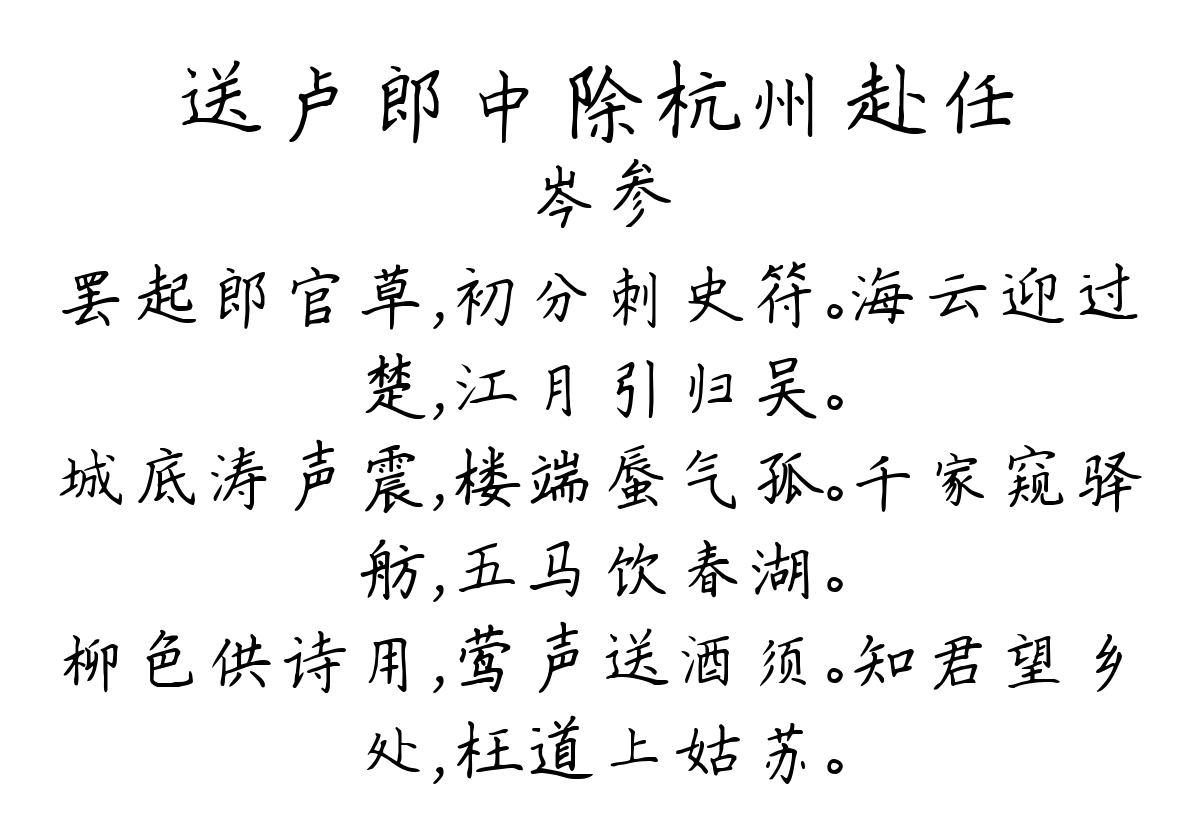 送卢郎中除杭州赴任
岑参
罢起郎官草,初分刺史符。海云迎过
楚,江月引归吴。
城底涛声震,楼端蜃气孤。千家窥驿
舫,五马饮春湖。
柳色供诗用,莺声送酒须。知君望乡
处,枉道上姑苏。